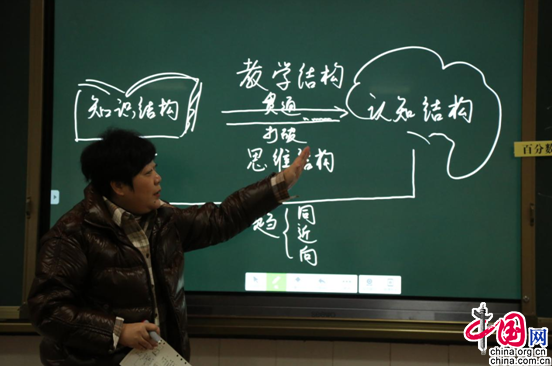 教学结构
知识结构
贯通
认知结构
打破
思维结构
百分数
趋
同
近
向
中国网
china.org.cn
china.com.cn